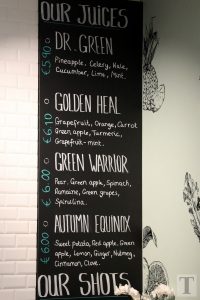 OUR JUICES
DR. GREEN
€5.90
Pineapple, Celery, Kale,
Cucumber, Lime, Mint.
GOLDEN HEAL
€6.10
Grapefruit, Orange, Carrot
Green apple, Turmeric,
Grapefruit-mint.
GREEN WARRIOR
€6.00
Pear, Green apple, Spinach,
Romaine, Green grapes,
Spirulina.
AUTUMN EQUINOX
€6.00
Sweet potato, Red apple, Green
apple, Lemon, Ginger, Nutmeg,
Cinnamon, Clove.
OUR SHOTS
T